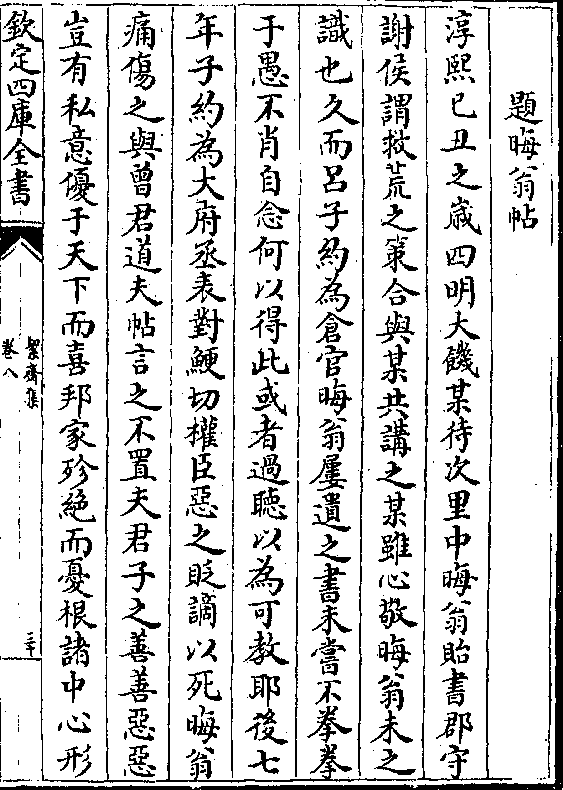 題晦翁帖
淳熙已丑之嵗四明大饑某待次里中晦翁貽書郡守
謝侯謂救荒之策合與某共講之某雖心敬晦翁未之
識也久而呂子約為倉官晦翁屢遺之書未嘗不拳拳
于愚不肖自念何以得此或者過聴以為可教耶後七
年子約為大府丞表對鯁切權臣惡之貶謫以死晦翁
痛傷之與曾君道夫帖言之不置夫君子之善善惡惡
豈有私意優于天下而喜邦家殄絶而憂根諸中心形
欽定四庫全書
絜齋集
卷八
三十